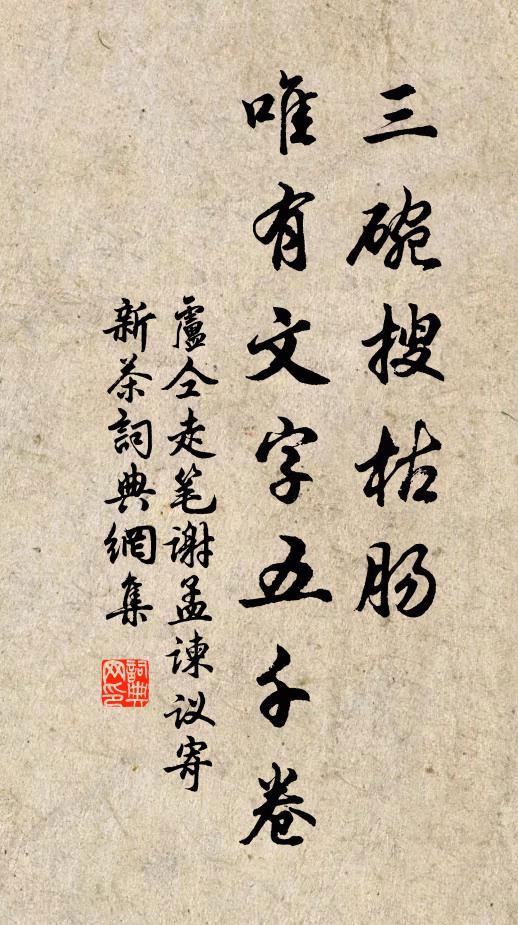 三碗搜枯肠
唯有文字五千卷
盧仝走笔谢孟谏议寄
新茶詞典網集
詞典
网印